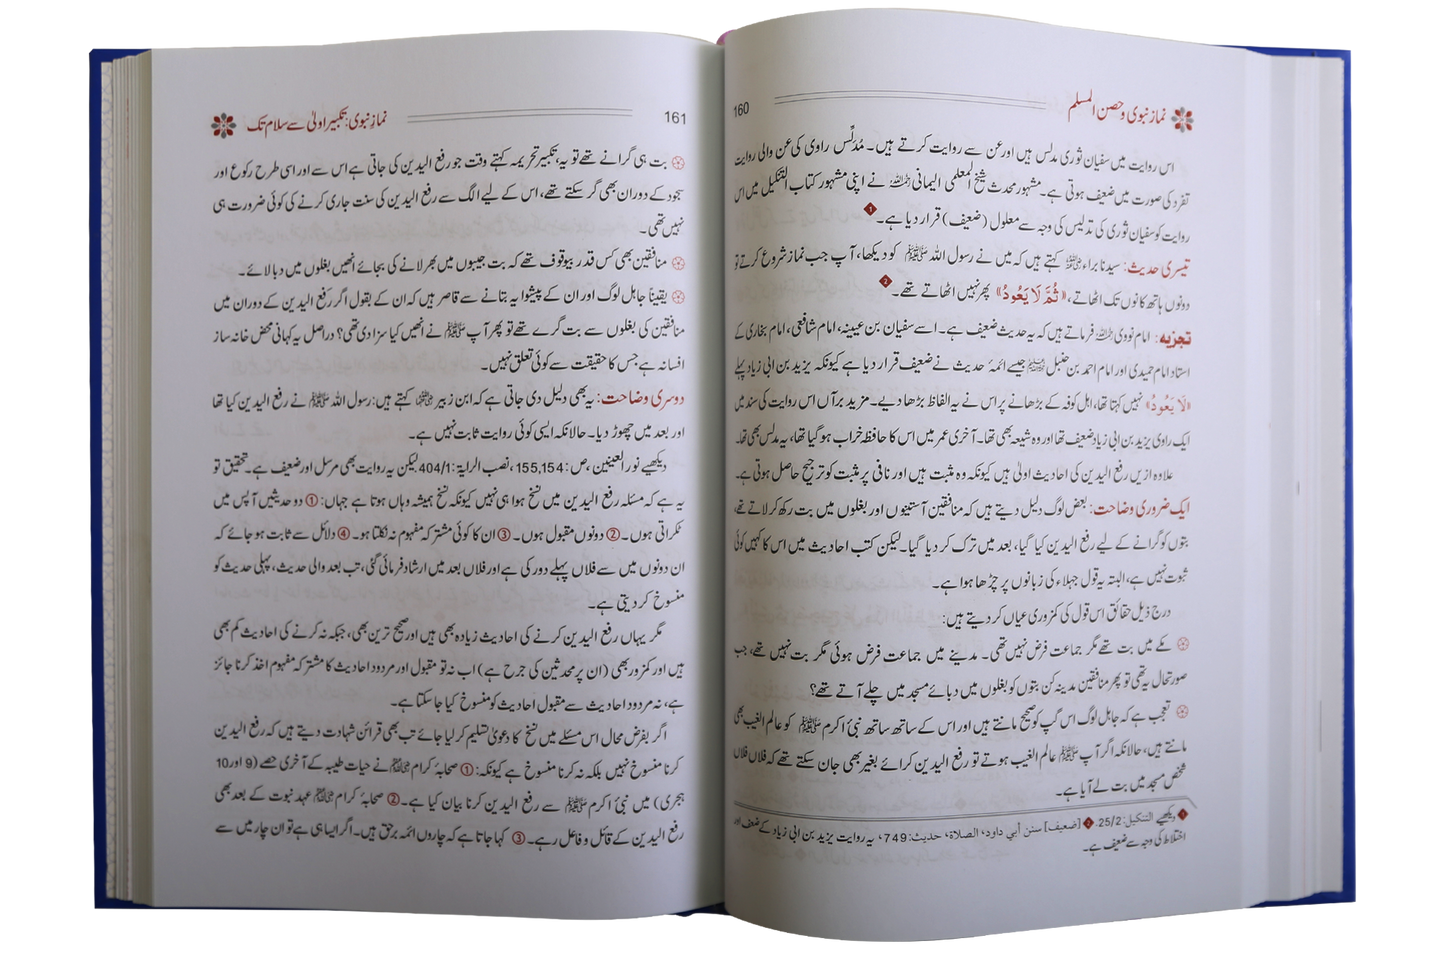 160 نماز نبوی و حصن المسلم
اس روایت میں سفیان ثوری مدلس ہیں اور عن سے روایت کرتے ہیں۔ مُدَلِّس راوی کی عن والی روایت
تفرد کی صورت میں ضعیف ہوتی ہے۔ مشہور محدث شیخ المعلمی الیمانی رحمہ اللہ نے اپنی مشہور کتاب التنکیل میں اس
روایت کو سفیان ثوری کی تدلیس کی وجہ سے معلول (ضعیف) قرار دیا ہے۔ 1
تیسری حدیث: سیدنا براء رضی اللہ عنہ کہتے ہیں کہ میں نے رسول اللہ ﷺ کو دیکھا، آپ جب نماز شروع کرتے تو
دونوں ہاتھ کانوں تک اٹھاتے، «ثُمَّ لَا يَعُودُ» پھر نہیں اٹھاتے تھے۔ 2
تجزیہ: امام نووی رحمہ اللہ فرماتے ہیں کہ یہ حدیث ضعیف ہے۔ اسے سفیان بن عیینہ، امام شافعی، امام بخاری کے
استاد امام حمیدی اور امام احمد بن حنبل جیسے ائمۂ حدیث نے ضعیف قرار دیا ہے کیونکہ یزید بن ابی زیاد پہلے
«لَا يَعُودُ» نہیں کہتا تھا، اہل کوفہ کے پڑھانے پر اس نے یہ الفاظ بڑھا دیے۔ مزید برآں اس روایت کی سند میں
ایک راوی یزید بن ابی زیاد ضعیف تھا اور وہ شیعہ بھی تھا۔ آخری عمر میں اس کا حافظہ خراب ہوگیا تھا، یہ مدلس بھی تھا۔
علاوہ ازیں رفع الیدین کی احادیث اولیٰ ہیں کیونکہ وہ مثبت ہیں اور نافی پر مثبت کو ترجیح حاصل ہوتی ہے۔
ایک ضروری وضاحت: بعض لوگ دلیل دیتے ہیں کہ منافقین آستینوں اور بغلوں میں بت رکھ کر لاتے تھے،
بتوں کو گرانے کے لیے رفع الیدین کیا گیا، بعد میں ترک کر دیا گیا۔ لیکن کتب احادیث میں اس کا کہیں کوئی
ثبوت نہیں ہے، البتہ یہ قول جہلاء کی زبانوں پر چڑھا ہوا ہے۔
درج ذیل حقائق اس قول کی کمزوری عیاں کر دیتے ہیں:
مکے میں بت تھے مگر جماعت فرض نہیں تھی۔ مدینے میں جماعت فرض ہوئی مگر بت نہیں تھے، جب
صورتحال یہ تھی تو پھر منافقین مدینہ کن بتوں کو بغلوں میں دبائے مسجد میں چلے آتے تھے؟
تعجب ہے کہ جاہل لوگ اس گپ کو صحیح مانتے ہیں اور اس کے ساتھ ساتھ نبیٔ اکرم ﷺ کو عالم الغیب بھی
مانتے ہیں، حالانکہ اگر آپ ﷺ عالم الغیب ہوتے تو رفع الیدین کرائے بغیر بھی جان سکتے تھے کہ فلاں فلاں
شخص مسجد میں بت لے آیا ہے۔
1 دیکھیے التنکیل: 25/2. 2 [ضعیف] سنن أبي داود، الصلاة، حدیث: 749، یہ روایت یزید بن ابی زیاد کے ضعف اور
اختلاط کی وجہ سے ضعیف ہے۔
161 نماز نبوی: تکبیر اولیٰ سے سلام تک
بت ہی گرانے تھے تو یہ، تکبیر تحریمہ کہتے وقت جو رفع الیدین کی جاتی ہے اس سے اور اسی طرح رکوع اور
سجود کے دوران بھی گر سکتے تھے، اس کے لیے الگ سے رفع الیدین کی سنت جاری کرنے کی کوئی ضرورت ہی
نہیں تھی۔
منافقین بھی کس قدر بیوقوف تھے کہ بت جیبوں میں بھر لانے کی بجائے انھیں بغلوں میں دبا لائے۔
یقیناً جاہل لوگ اور ان کے پیشوا یہ بتانے سے قاصر ہیں کہ ان کے بقول اگر رفع الیدین کے دوران میں
منافقین کی بغلوں سے بت گرے تھے تو پھر آپ ﷺ نے انھیں کیا سزا دی تھی؟ دراصل یہ کہانی محض خانہ ساز
افسانہ ہے جس کا حقیقت سے کوئی تعلق نہیں۔
دوسری وضاحت: یہ بھی دلیل دی جاتی ہے کہ ابن زبیر رضی اللہ عنہما کہتے ہیں: رسول اللہ ﷺ نے رفع الیدین کیا تھا
اور بعد میں چھوڑ دیا۔ حالانکہ ایسی کوئی روایت ثابت نہیں ہے۔
دیکھیے نور العینین، ص: 155,154، نصب الرایۃ: 404/1 لیکن یہ روایت بھی مرسل اور ضعیف ہے۔ تحقیق تو
یہ ہے کہ مسئلہ رفع الیدین میں نسخ ہوا ہی نہیں کیونکہ نسخ ہمیشہ وہاں ہوتا ہے جہاں: ① دو حدیثیں آپس میں
ٹکراتی ہوں۔ ② دونوں مقبول ہوں۔ ③ ان کا کوئی مشترکہ مفہوم نہ نکلتا ہو۔ ④ دلائل سے ثابت ہو جائے کہ
ان دونوں میں سے فلاں پہلے دور کی ہے اور فلاں بعد میں ارشاد فرمائی گئی، تب بعد والی حدیث، پہلی حدیث کو
منسوخ کر دیتی ہے۔
مگر یہاں رفع الیدین کرنے کی احادیث زیادہ بھی ہیں اور صحیح ترین بھی، جبکہ نہ کرنے کی احادیث کم بھی
ہیں اور کمزور بھی (ان پر محدثین کی جرح ہے) اب نہ تو مقبول اور مردود احادیث کا مشترکہ مفہوم اخذ کرنا جائز
ہے، نہ مردود احادیث سے مقبول احادیث کو منسوخ کیا جا سکتا ہے۔
اگر بفرض محال اس مسئلے میں نسخ کا دعویٰ تسلیم کر لیا جائے تب بھی قرائن شہادت دیتے ہیں کہ رفع الیدین
کرنا منسوخ نہیں بلکہ نہ کرنا منسوخ ہے کیونکہ: ① صحابۂ کرام نے حیات طیبہ کے آخری حصے (9 اور 10
ہجری) میں نبیٔ اکرم ﷺ سے رفع الیدین کرنا بیان کیا ہے۔ ② صحابۂ کرام عہد نبوت کے بعد بھی
رفع الیدین کے قائل و فاعل رہے۔ ③ کہا جاتا ہے کہ چاروں ائمہ برحق ہیں۔ اگر ایسا ہی ہے تو ان چار میں سے